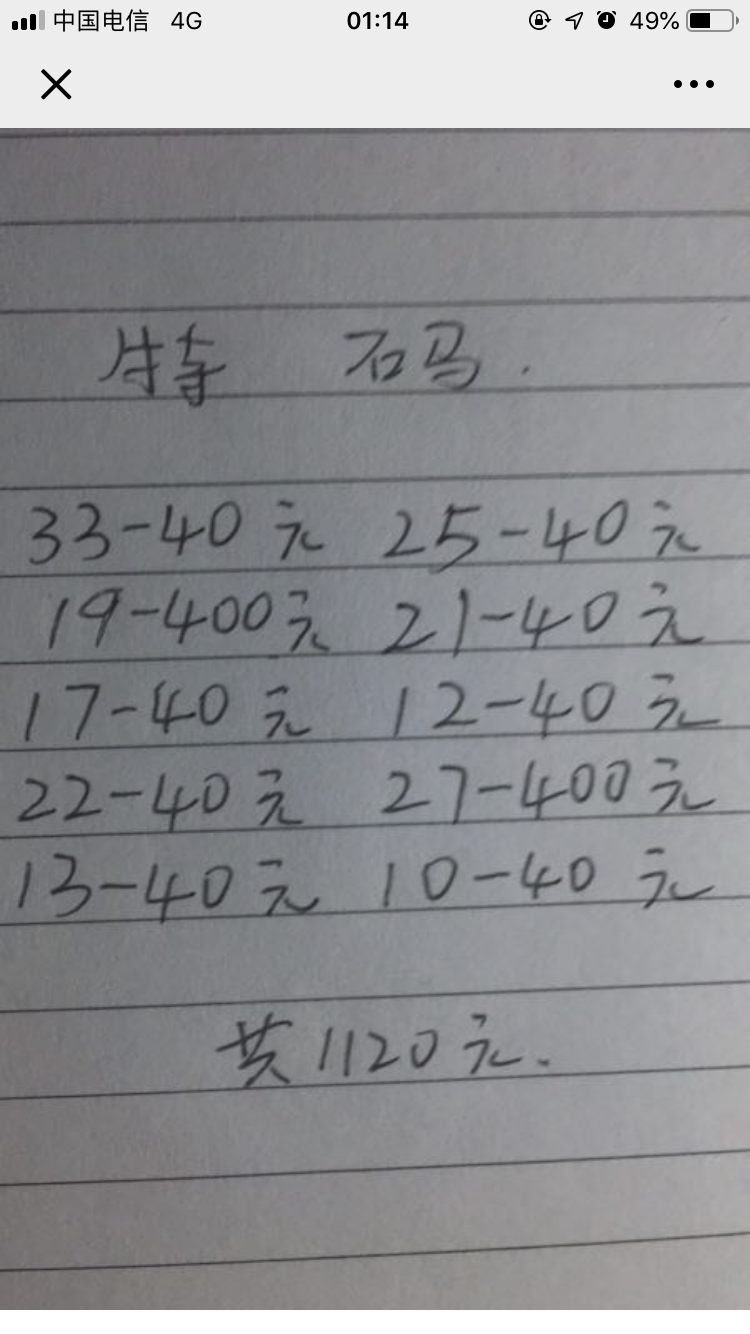 中国电信 4G 01:14 49%
特 码.
33-40元 25-40元
19-400元 21-40元
17-40元 12-40元
22-40元 27-400元
13-40元 10-40元
共1120元.